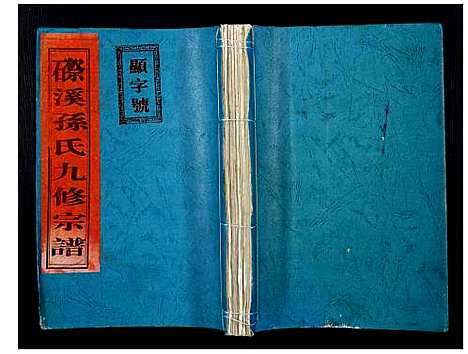 磜溪孫氏九修宗譜
顯字號